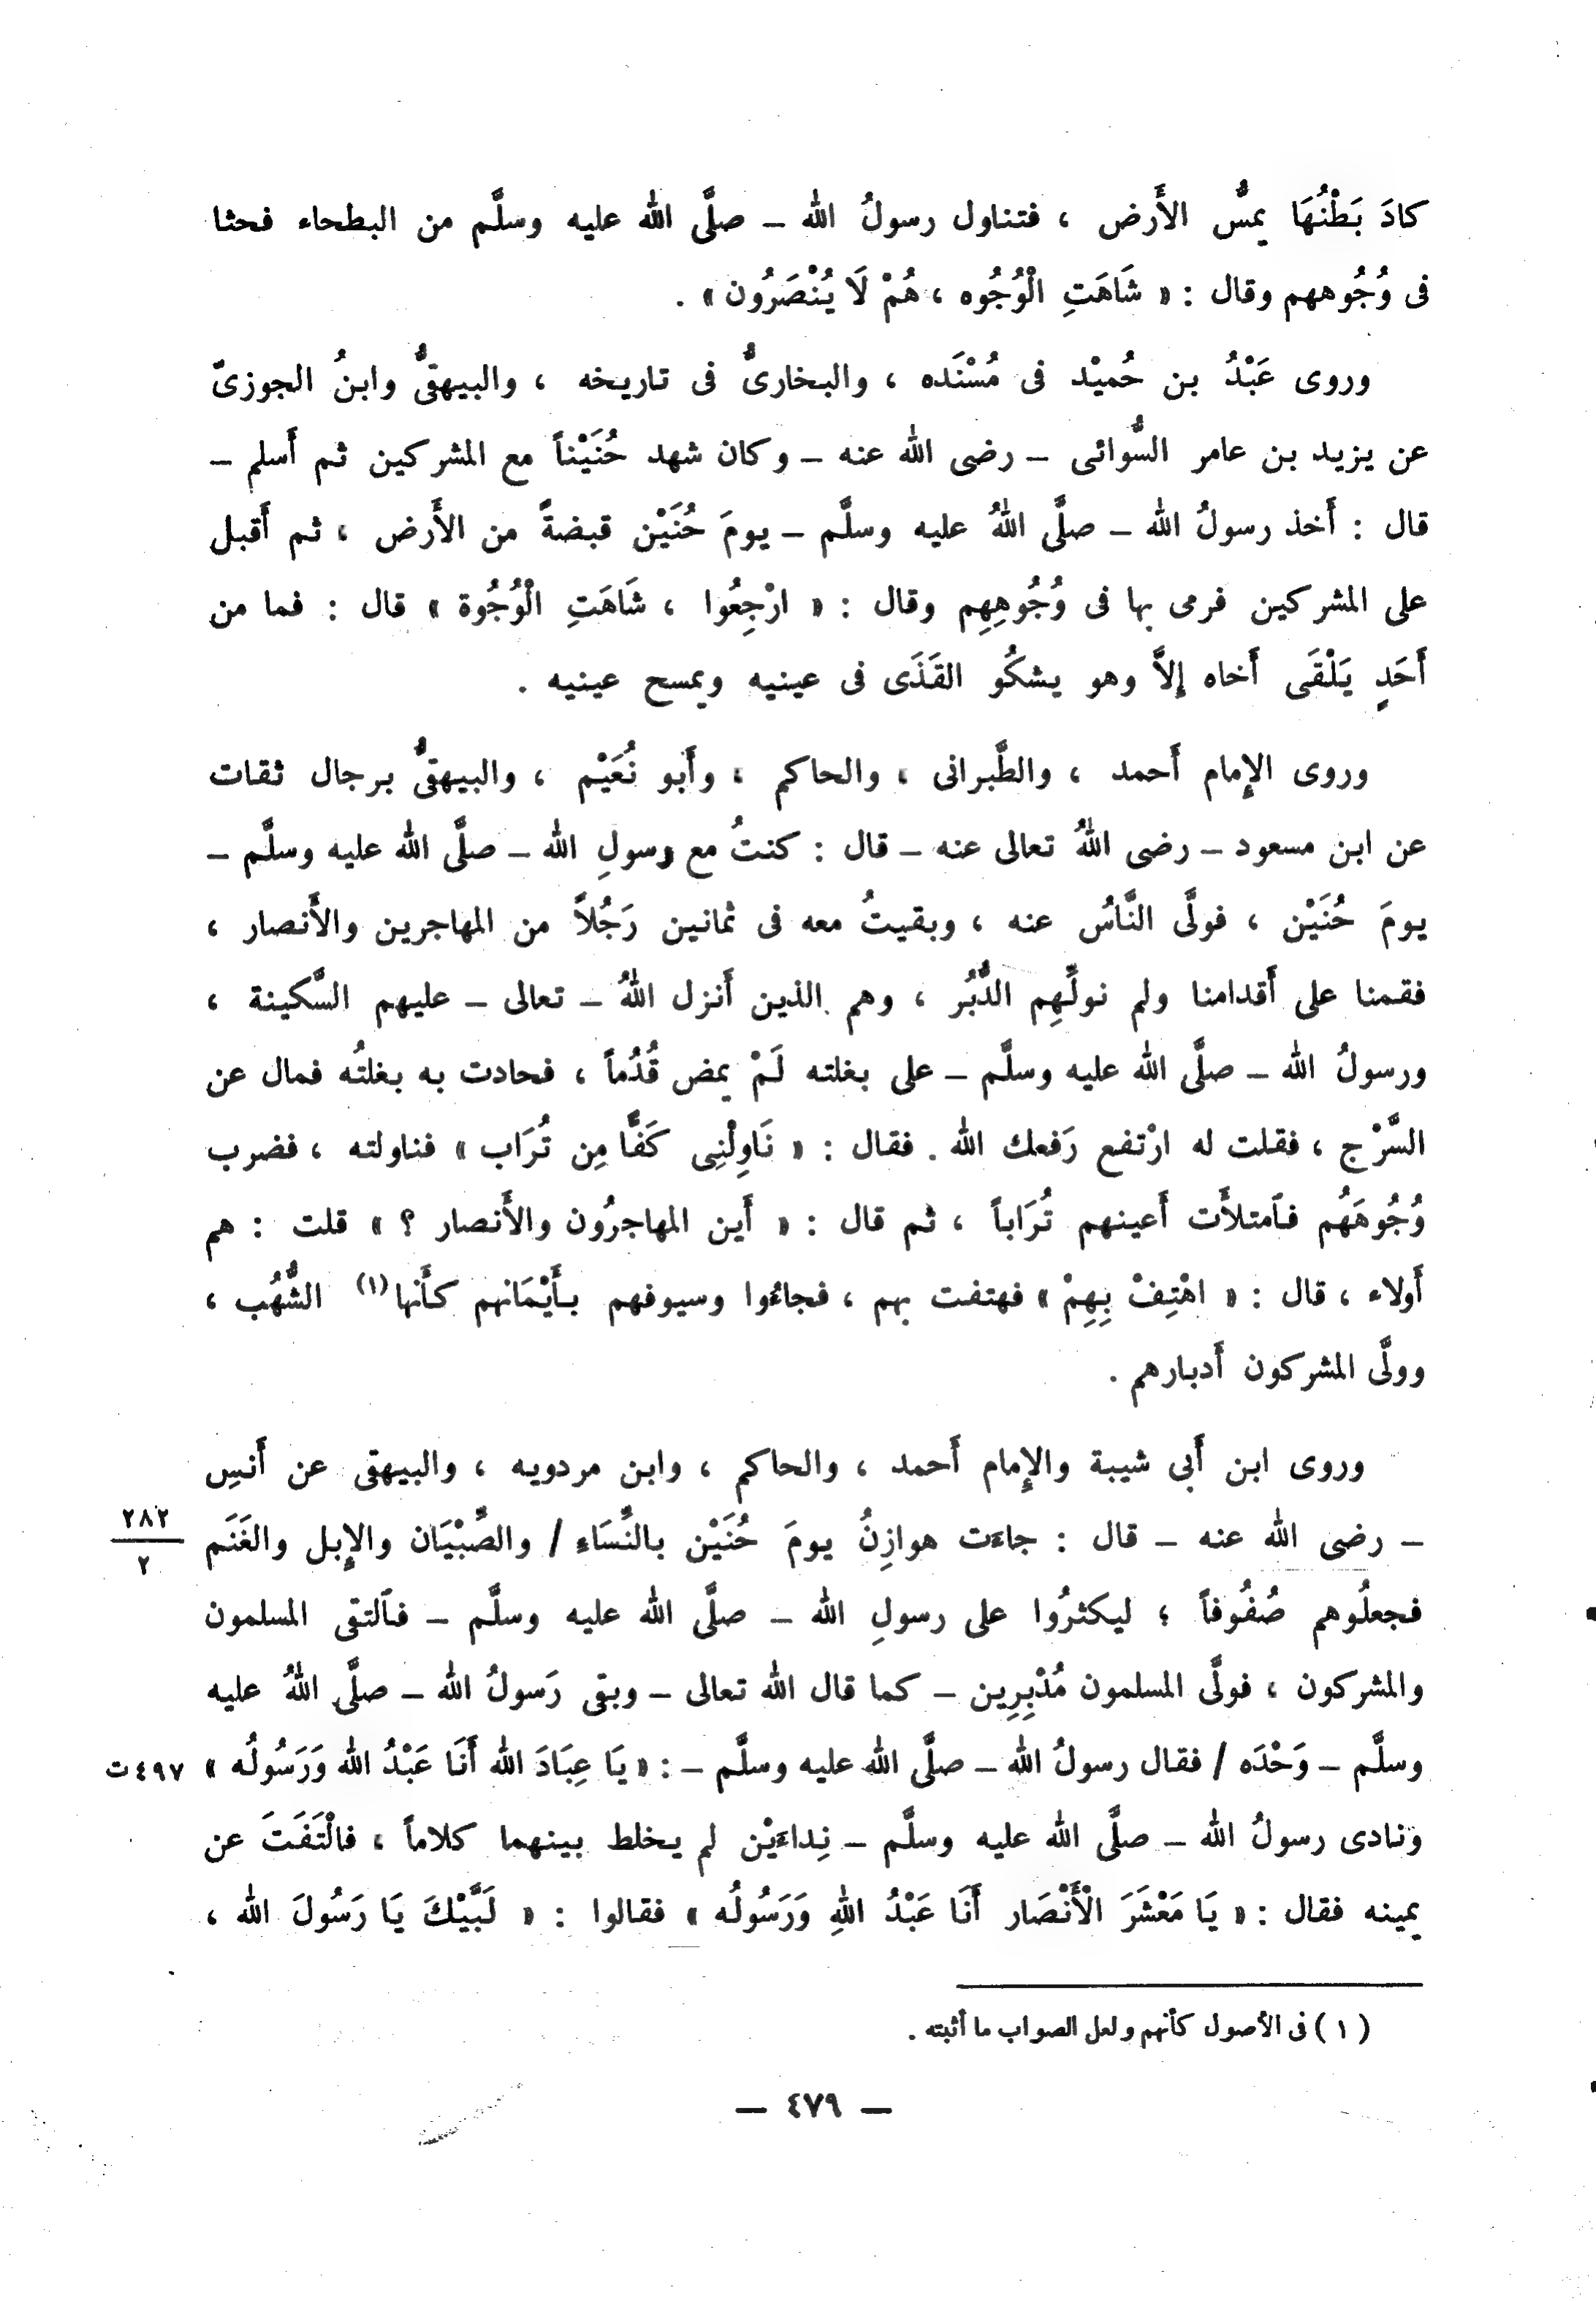 كادَ بَطْنُهَا يمسُّ الأَرض ، فتناول رسولُ الله – صلَّى الله عليه وسلَّم من البطحاء فحثا
فى وُجُوههم وقال : « شَاهَتِ الْوُجُوه ، هُمْ لَا يُنْصَرُون » .
وروى عَبْدُ بن حُميْد فى مُسْنَده ، والبخارىُّ فى تاريخه ، والبيهقىُّ وابنُ الجوزىّ
عن يزيد بن عامر السُّوائى – رضى الله عنه – وكان شهد حُنَيْناً مع المشركين ثم أَسلم –
قال : أَخذ رسولُ الله – صلَّى اللهُ عليه وسلَّم – يومَ حُنَيْن قبضةً من الأَرض ، ثم أَقبل
على المشركين فرمى بها فى وُجُوهِهِم وقال : « ارْجِعُوا ، شَاهَتِ الْوُجُوة » قال : فما من
أَحَدٍ يَلْقَى أَخاه إلاَّ وهو يشكُو القَذَى فى عينيه ويمسح عينيه .
وروى الإِمام أَحمد ، والطَّبرانى ، والحاكم ، وأَبو نُعَيْم ، والبيهقىُّ برجال ثقات
عن ابن مسعود – رضى اللهُ تعالى عنه – قال : كنتُ مع رسولِ الله – صلَّى الله عليه وسلَّم –
يومَ حُنَيْن ، فولَّى النَّاسُ عنه ، وبقيتُ معه فى ثمانين رَجُلاً من المهاجرين والأَنصار ،
فقمنا على أَقدامنا ولم نولِّهِم الدُّبُر ، وهم الذين أَنزل اللهُ – تعالى – عليهم السَّكينة ،
ورسولُ الله – صلَّى الله عليه وسلَّم – على بغلته لَمْ يمض قُدُماً ، فحادت به بغلتُه فمال عن
السَّرْج ، فقلت له ارْتفع رَفعك الله . فقال : « نَاوِلْنِى كَفًّا مِن تُرَاب » فناولته ، فضرب
وُجُوهَهُم فٱمتلأَت أَعينهم تُرَاباً ، ثم قال : « أَين المهاجرُون والأَنصار ؟ » قلت : هم
أَولاء ، قال : « اهْتِفْ بِهِمْ » فهتفت بهم ، فجاءُوا وسيوفهم بأَيْمَانهم كأَنها(١) الشُّهُب ،
وولَّى المشركون أَدبارهم .
وروى ابن أَبى شيبة والإِمام أَحمد ، والحاكم ، وابن مردويه ، والبيهقى عن أَنسِ
– رضى الله عنه – قال : جاءَت هوازِنُ يومَ حُنَيْن بالنِّسَاءِ / والصِّبْيَان والإِبل والغَنَم ٢٨٢/٢
فجعلُوهم صُفُوفاً ؛ ليكثرُوا على رسولِ الله – صلَّى الله عليه وسلَّم – فٱلتقى المسلمون
والمشركون ، فولَّى المسلمون مُدْبِرِين – كما قال الله تعالى – وبقى رَسولُ الله – صلَّى اللهُ عليه
وسلَّم – وَحْدَه / فقال رسولُ الله – صلَّى الله عليه وسلَّم – : « يَا عِبَادَ الله أَنَا عَبْدُ الله وَرَسُولُه » ٤٩٧ت
ونادى رسولُ الله – صلَّى الله عليه وسلَّم – نِداءَيْن لم يخلط بينهما كلاماً ، فالْتَفَتَ عن
يمينه فقال : « يَا مَعْشَرَ الْأَنْصَار أَنَا عَبْدُ اللهِ وَرَسُولُه » فقالوا : « لَبَّيْكَ يَا رَسُولَ الله ،
( ١ ) فى الأصول كأنهم ولعل الصواب ما أثبته .
— ٤٧٩ —